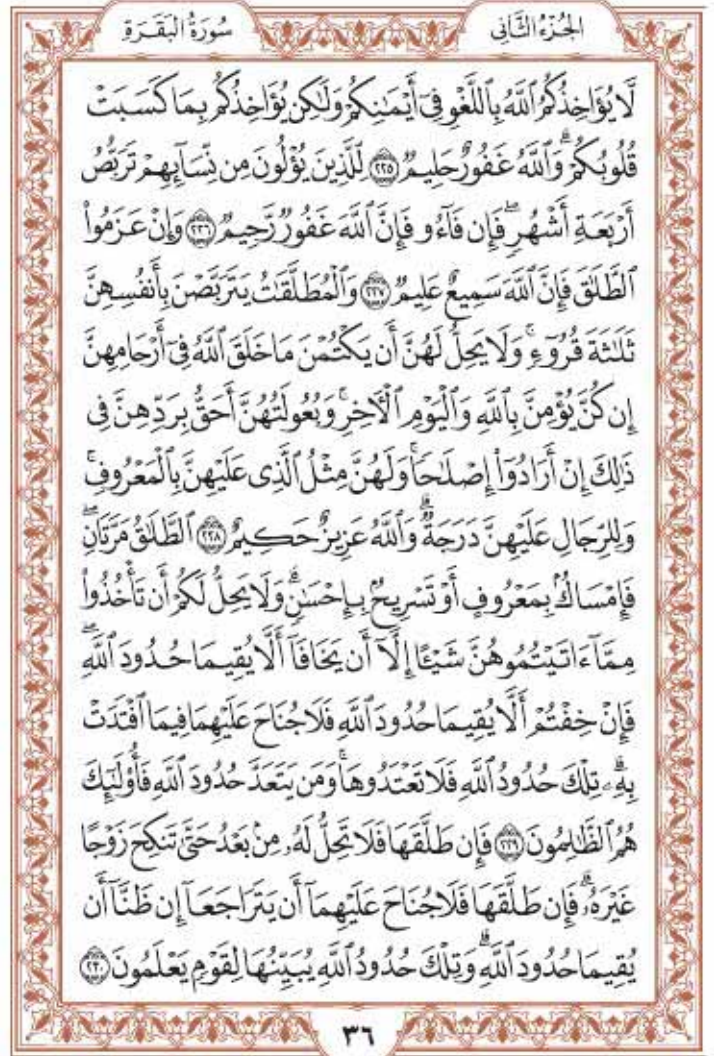 سُورَةُ الْبَقَرَةِ
الجُزْءُ الثَّانِي
لَّا يُؤَاخِذُكُمُ ٱللَّهُ بِٱللَّغْوِ فِىٓ أَيْمَـٰنِكُمْ وَلَـٰكِن يُؤَاخِذُكُم بِمَا كَسَبَتْ
قُلُوبُكُمْ ۗ وَٱللَّهُ غَفُورٌ حَلِيمٌ ٢٢٥ لِّلَّذِينَ يُؤْلُونَ مِن نِّسَآئِهِمْ تَرَبُّصُ
أَرْبَعَةِ أَشْهُرٍ ۖ فَإِن فَآءُو فَإِنَّ ٱللَّهَ غَفُورٌ رَّحِيمٌ ٢٢٦ وَإِنْ عَزَمُوا۟
ٱلطَّلَـٰقَ فَإِنَّ ٱللَّهَ سَمِيعٌ عَلِيمٌ ٢٢٧ وَٱلْمُطَلَّقَـٰتُ يَتَرَبَّصْنَ بِأَنفُسِهِنَّ
ثَلَـٰثَةَ قُرُوٓءٍ ۚ وَلَا يَحِلُّ لَهُنَّ أَن يَكْتُمْنَ مَا خَلَقَ ٱللَّهُ فِىٓ أَرْحَامِهِنَّ
إِن كُنَّ يُؤْمِنَّ بِٱللَّهِ وَٱلْيَوْمِ ٱلْـَٔاخِرِ ۚ وَبُعُولَتُهُنَّ أَحَقُّ بِرَدِّهِنَّ فِى
ذَٰلِكَ إِنْ أَرَادُوٓا۟ إِصْلَـٰحًا ۚ وَلَهُنَّ مِثْلُ ٱلَّذِى عَلَيْهِنَّ بِٱلْمَعْرُوفِ ۚ
وَلِلرِّجَالِ عَلَيْهِنَّ دَرَجَةٌ ۗ وَٱللَّهُ عَزِيزٌ حَكِيمٌ ٢٢٨ ٱلطَّلَـٰقُ مَرَّتَانِ ۖ
فَإِمْسَاكٌۢ بِمَعْرُوفٍ أَوْ تَسْرِيحٌۢ بِإِحْسَـٰنٍ ۗ وَلَا يَحِلُّ لَكُمْ أَن تَأْخُذُوا۟
مِمَّآ ءَاتَيْتُمُوهُنَّ شَيْـًٔا إِلَّآ أَن يَخَافَآ أَلَّا يُقِيمَا حُدُودَ ٱللَّهِ ۖ
فَإِنْ خِفْتُمْ أَلَّا يُقِيمَا حُدُودَ ٱللَّهِ فَلَا جُنَاحَ عَلَيْهِمَا فِيمَا ٱفْتَدَتْ
بِهِۦ ۗ تِلْكَ حُدُودُ ٱللَّهِ فَلَا تَعْتَدُوهَا ۚ وَمَن يَتَعَدَّ حُدُودَ ٱللَّهِ فَأُو۟لَـٰٓئِكَ
هُمُ ٱلظَّـٰلِمُونَ ٢٢٩ فَإِن طَلَّقَهَا فَلَا تَحِلُّ لَهُۥ مِنۢ بَعْدُ حَتَّىٰ تَنكِحَ زَوْجًا
غَيْرَهُۥ ۗ فَإِن طَلَّقَهَا فَلَا جُنَاحَ عَلَيْهِمَآ أَن يَتَرَاجَعَآ إِن ظَنَّآ أَن
يُقِيمَا حُدُودَ ٱللَّهِ ۗ وَتِلْكَ حُدُودُ ٱللَّهِ يُبَيِّنُهَا لِقَوْمٍ يَعْلَمُونَ ٢٣٠
٣٦